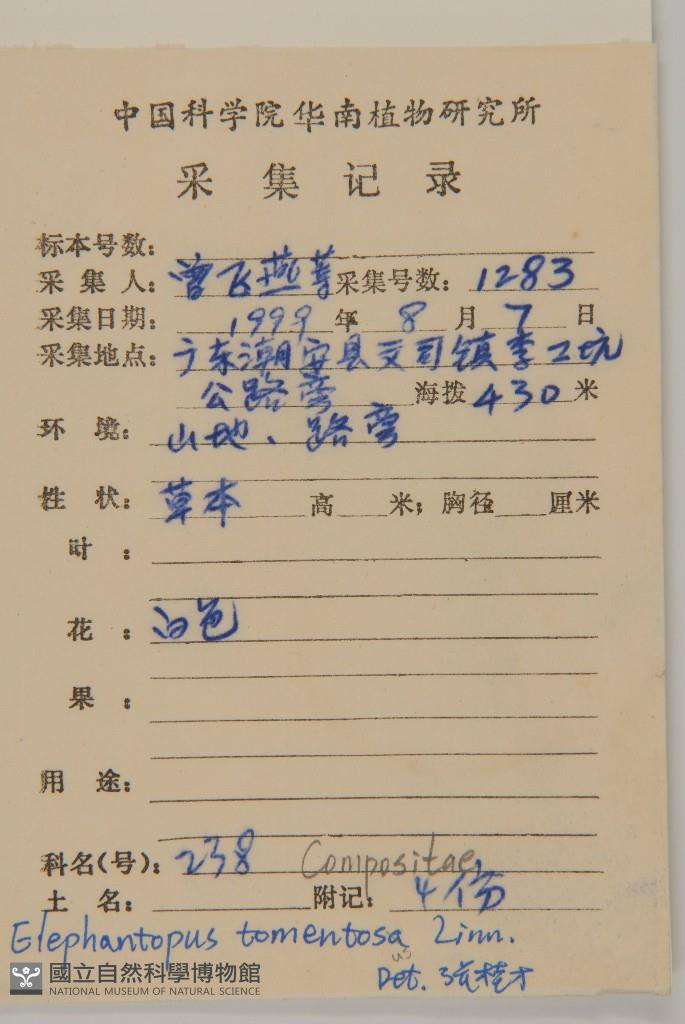 中国科学院华南植物研究所
采集记录
标本号数：
采集人：曾飞燕等 采集号数：1283
采集日期：1999年8月7日
采集地点：广东潮安县文司镇李工坑
公路旁 海拨430米
环境：山地、路旁
性状：草本 高 米；胸径 厘米
叶：
花：白色
果：
用途：
科名(号)：238 Compositae
土名： 附记：4份
Elephantopus tomentosa Linn.
us
Det. 张桂才
國立自然科學博物館
NATIONAL MUSEUM OF NATURAL SCIENCE